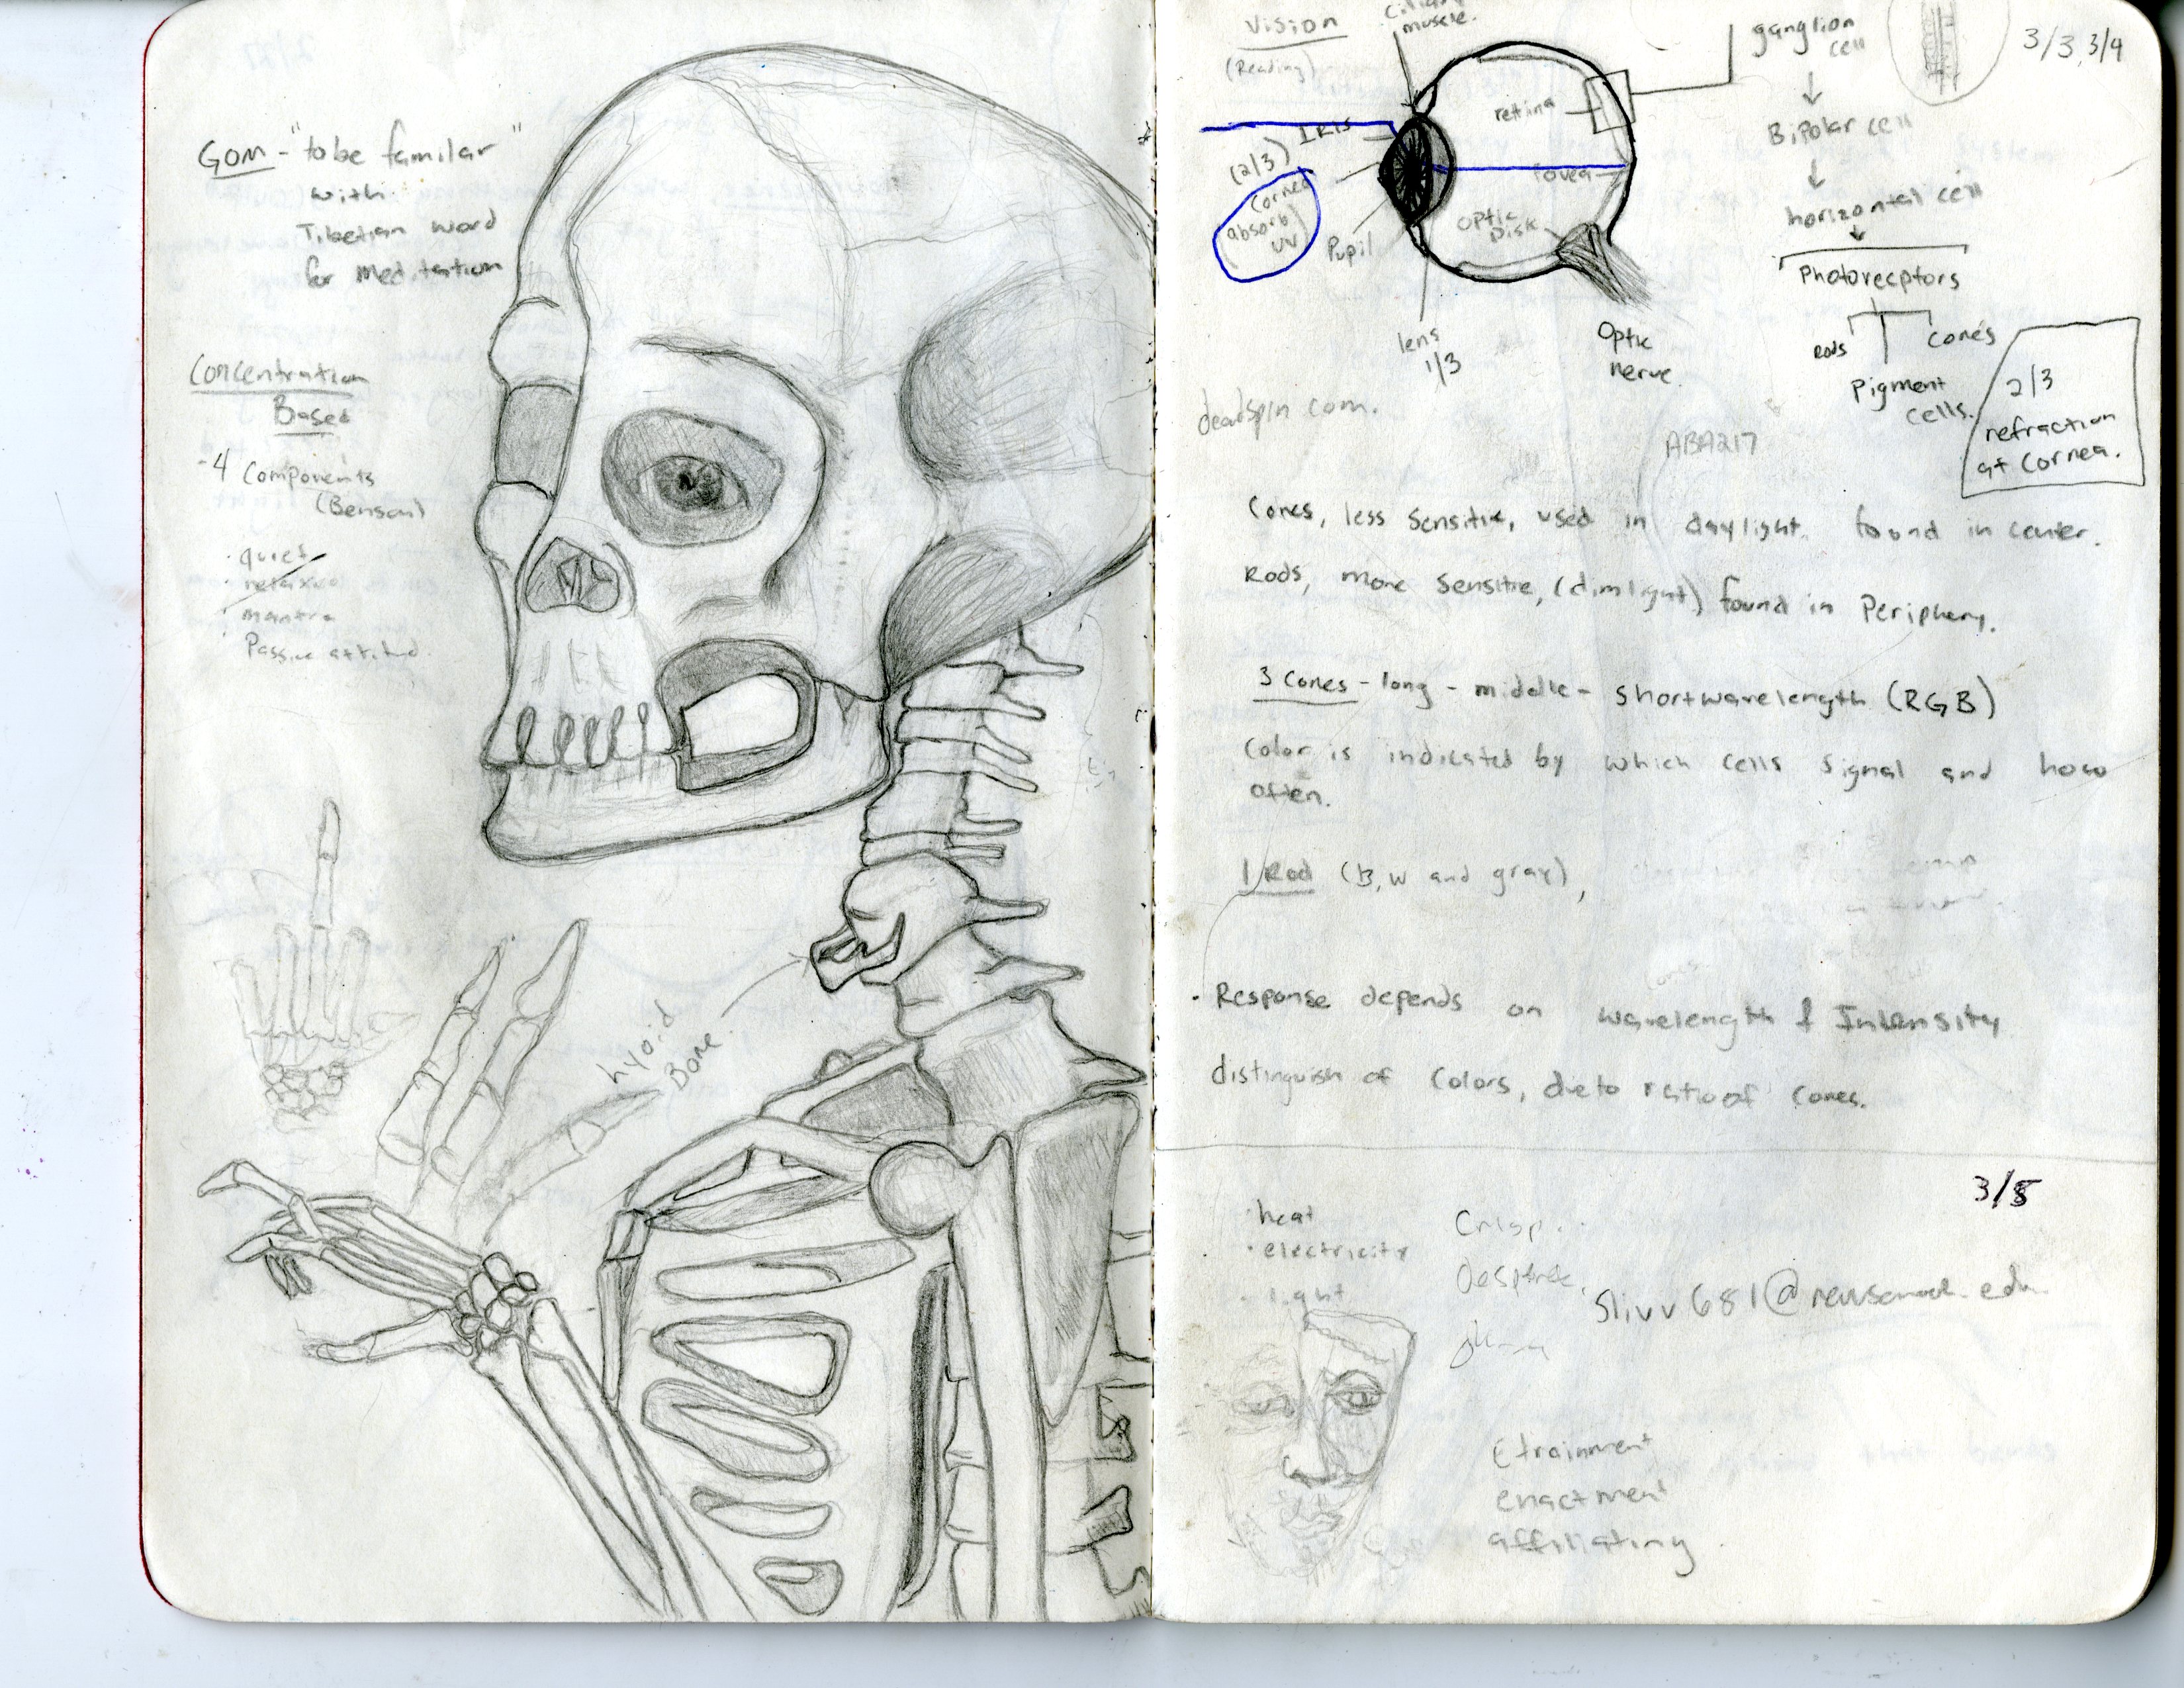 GOM - "to be familar"
with
Tibetian word
for Meditation
Concentration
Based
- 4 Components
(Benson)
· quiet
· relaxed
· mantra
Passive attitud
hyoid
Bone
Vision
(Reading)
muscle.
IRIS
(2/3)
Cornea
absorb
UV
Pupil
lens
1/3
retina
fovea
Optic
Disk
Optic
nerve.
ganglion
cell
Bipolar cell
horizontal cell
Photorecptors
Rods
Cones
Pigment
cells.
3/3, 3/4
2/3
refraction
at Cornea.
deadspin com.
ABA217
Cones, less sensitive, used in daylight. found in center.
Rods, more sensitie, (dimlight) found in Periphery.
3 Cones - long - middle - shortwavelength (RGB)
Color is indicated by which cells signal and how
often.
1 Rod (B, W and gray),
· Response depends on wavelength & Intensity
distinguish of Colors, due to ratio of Cones.
3/8
· heat
· electricity
· light
Crisp..
slivv681@newschool.edu
Etrainment
enactment
affiliating